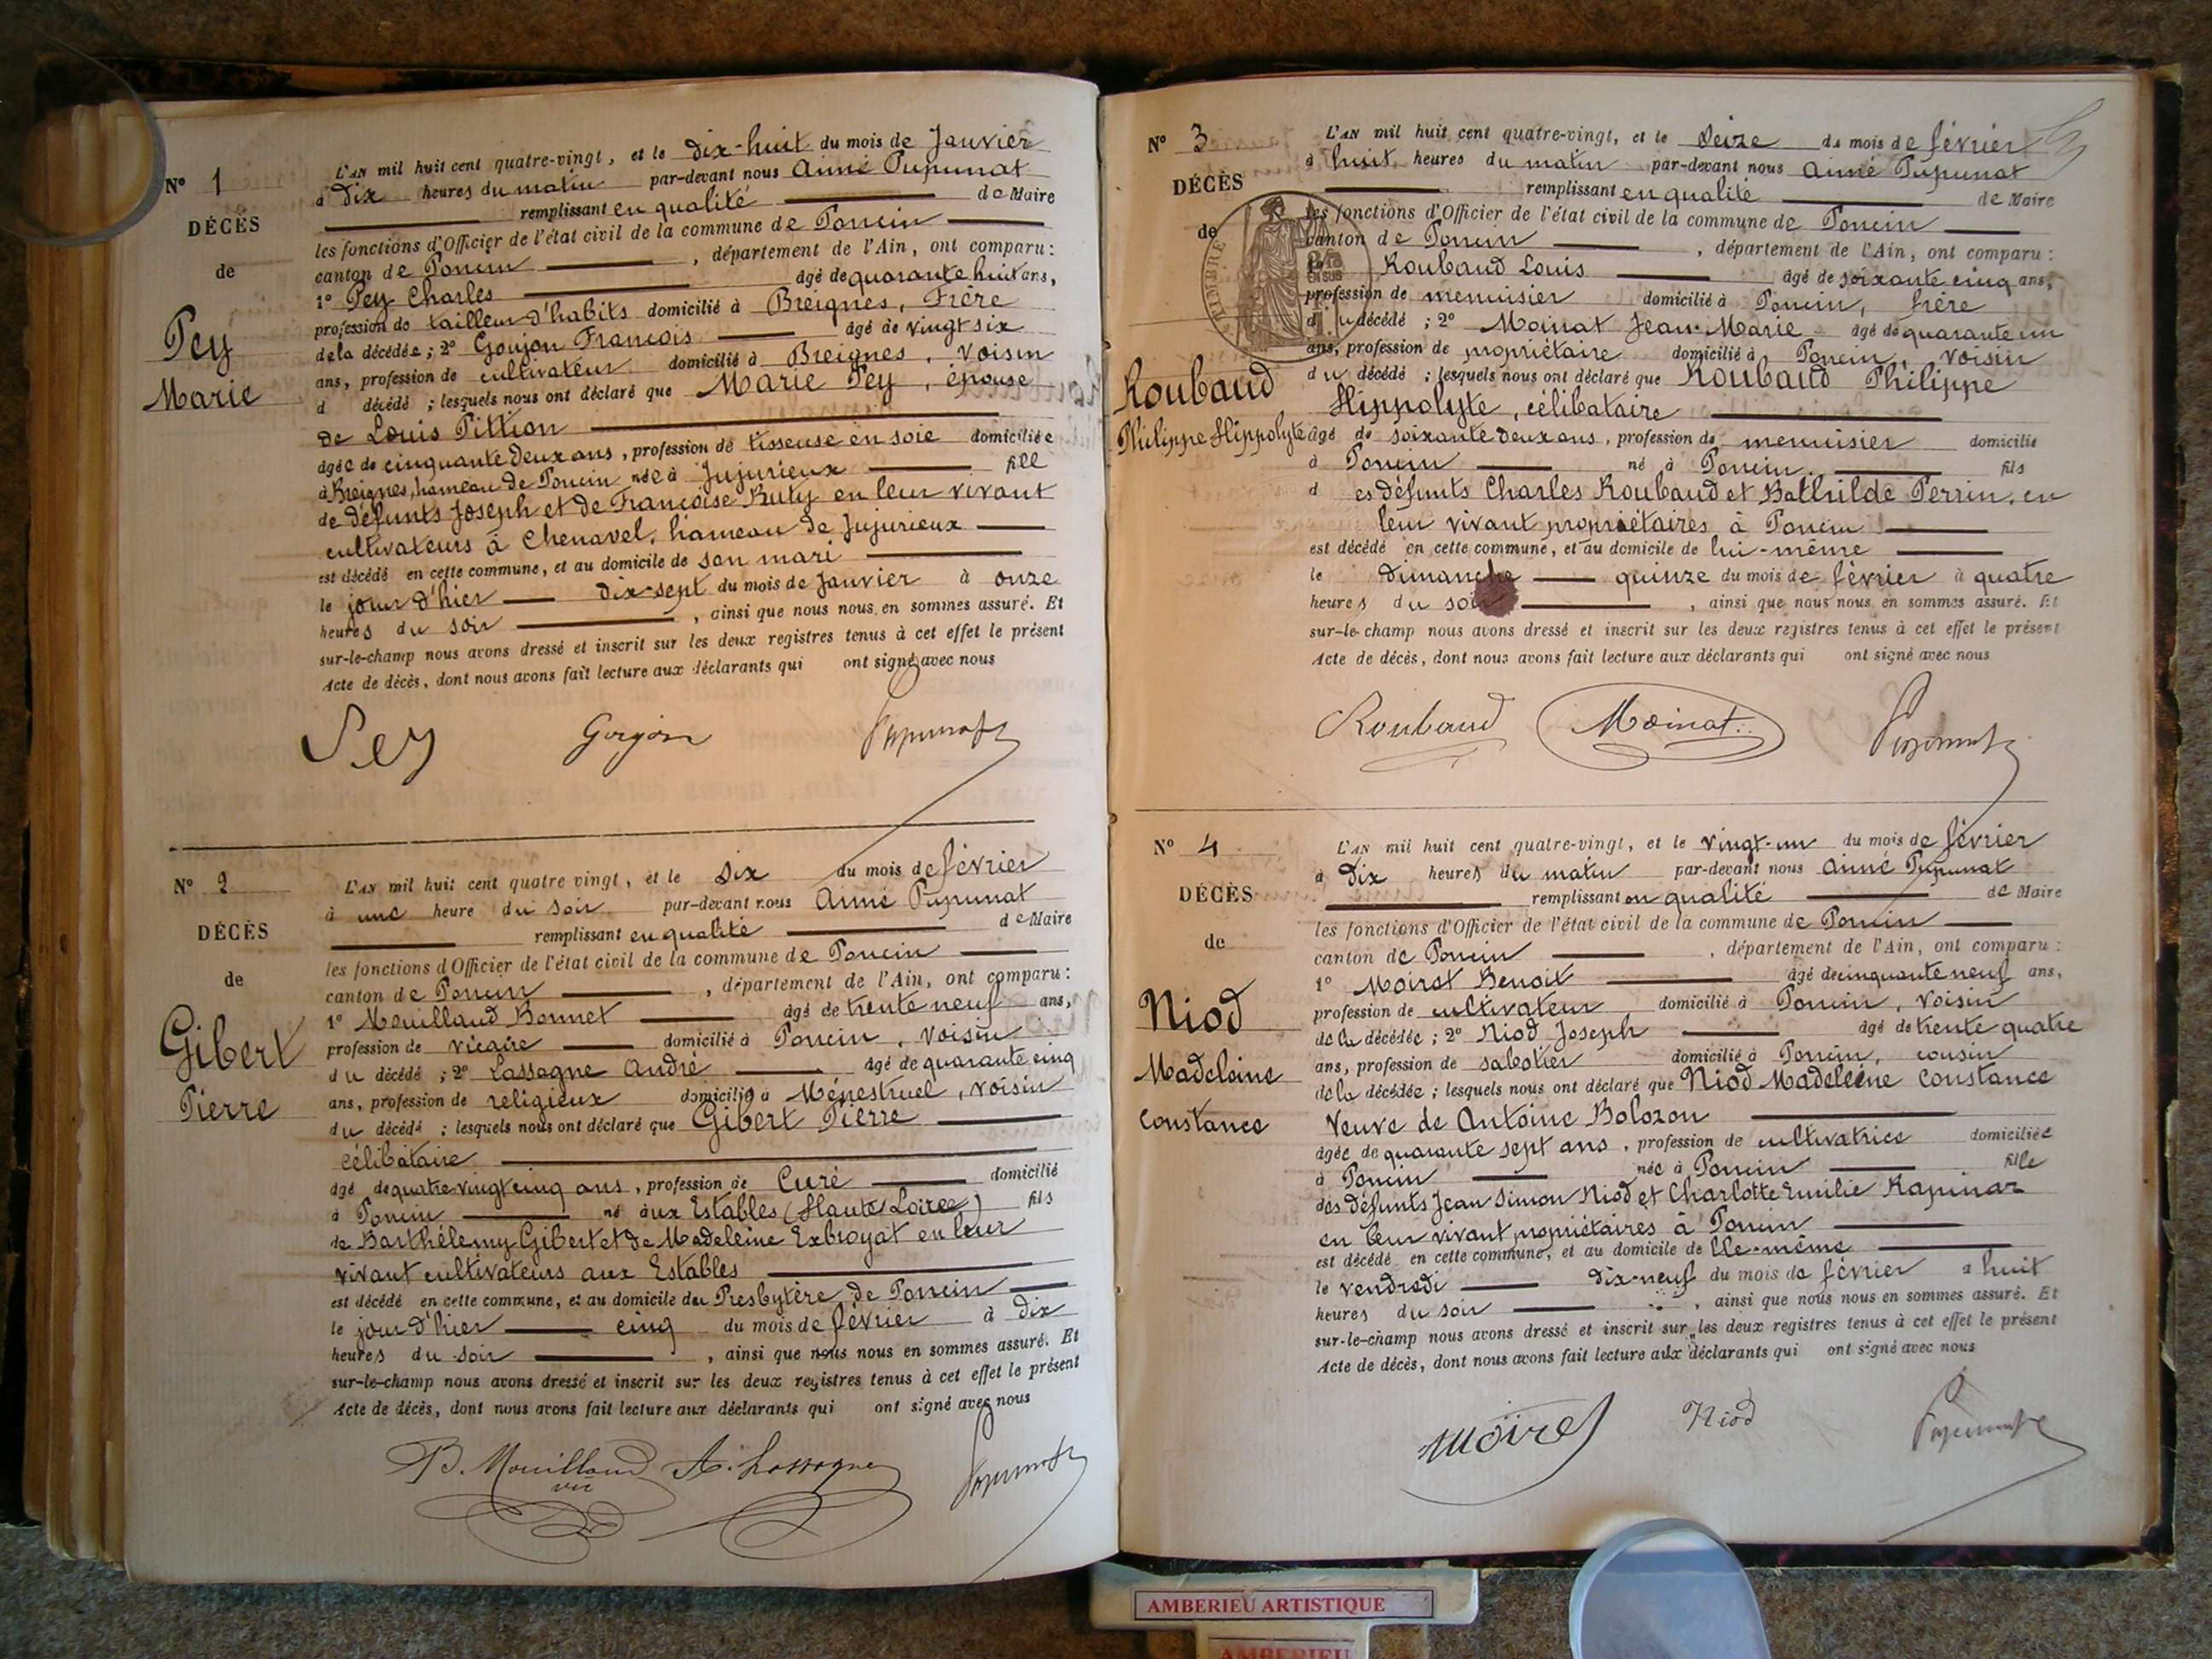 N° 1
DÉCÈS
de
Pey
Marie
L'AN mil huit cent quatre-vingt, et le dix-huit du mois de Janvier
à Dix heures du matin par-devant nous Aimé Pupunat
remplissant en qualité de Maire
les fonctions d'Officier de l'état civil de la commune de Poncin
canton de Poncin, département de l'Ain, ont comparu :
1° Pey Charles âgé de quarante huit ans,
profession de tailleur d'habits domicilié à Breignes, Frère
de la décédée ; 2° Goujon François âgé de vingt six
ans, profession de cultivateur domicilié à Breignes, Voisin
d décédé ; lesquels nous ont déclaré que Marie Pey, épouse
de Louis Pittion
âgée de cinquante deux ans, profession de tisseuse en soie domiciliée
à Breignes, hameau de Poncin née à Jujurieux fille
de défunts Joseph et de Françoise Buty en leur vivant
cultivateurs à Chenavel, hameau de Jujurieux
est décédé en cette commune, et au domicile de son mari
le jour d'hier dix-sept du mois de Janvier à onze
heures du soir, ainsi que nous nous en sommes assuré. Et
sur-le-champ nous avons dressé et inscrit sur les deux registres tenus à cet effet le présent
Acte de décès, dont nous avons fait lecture aux déclarants qui ont signé avec nous
Pey Goujon Pupunat
N° 2
DÉCÈS
de
Gibert
Pierre
L'AN mil huit cent quatre vingt, et le six du mois de février
à une heure du soir par-devant nous Aimé Pupunat
remplissant en qualité de Maire
les fonctions d'Officier de l'état civil de la commune de Poncin
canton de Poncin, département de l'Ain, ont comparu :
1° Mouilland Bonnet âgé de trente neuf ans,
profession de vicaire domicilié à Poncin, Voisin
du décédé ; 2° Lassagne André âgé de quarante cinq
ans, profession de religieux domicilié à Ménestruel, voisin
du décédé ; lesquels nous ont déclaré que Gibert Pierre
célibataire
âgé de quatre vingt cinq ans, profession de Curé domicilié
à Poncin né aux Estables (Haute Loire) fils
de Barthélemy Gibert et de Madeleine Exbroyat en leur
vivant cultivateurs aux Estables
est décédé en cette commune, et au domicile du Presbytère de Poncin
le jour d'hier cinq du mois de février à dix
heures du soir, ainsi que nous nous en sommes assuré. Et
sur-le-champ nous avons dressé et inscrit sur les deux registres tenus à cet effet le présent
Acte de décès, dont nous avons fait lecture aux déclarants qui ont signé avec nous
B. Mouilland A. Lassagne Pupunat
vic
N° 3
DÉCÈS
de
TIMBRE
Roubaud
Philippe Hippolyte
L'AN mil huit cent quatre-vingt, et le seize du mois de février
à huit heures du matin par-devant nous Aimé Pupunat
remplissant en qualité de Maire
les fonctions d'Officier de l'état civil de la commune de Poncin
canton de Poncin, département de l'Ain, ont comparu :
Roubaud Louis âgé de soixante cinq ans,
profession de menuisier domicilié à Poncin, frère
du décédé ; 2° Moinat Jean-Marie âgé de quarante un
ans, profession de propriétaire domicilié à Poncin, voisin
du décédé ; lesquels nous ont déclaré que Roubaud Philippe
Hippolyte, célibataire
âgé de soixante deux ans, profession de menuisier domicilié
à Poncin né à Poncin fils
des défunts Charles Roubaud et Bathilde Perrin, en
leur vivant propriétaires à Poncin
est décédé en cette commune, et au domicile de lui-même
le dimanche quinze du mois de février à quatre
heures du soir, ainsi que nous nous en sommes assuré. Et
sur-le-champ nous avons dressé et inscrit sur les deux registres tenus à cet effet le présent
Acte de décès, dont nous avons fait lecture aux déclarants qui ont signé avec nous
Roubaud Moinat Pupunat
N° 4
DÉCÈS
de
Niod
Madeleine
Constance
L'AN mil huit cent quatre-vingt, et le vingt-un du mois de février
à Dix heures du matin par-devant nous Aimé Pupunat
remplissant en qualité de Maire
les fonctions d'Officier de l'état civil de la commune de Poncin
canton de Poncin, département de l'Ain, ont comparu :
1° Moiret Benoit âgé de cinquante neuf ans,
profession de cultivateur domicilié à Poncin, voisin
de la décédée ; 2° Niod Joseph âgé de trente quatre
ans, profession de sabotier domicilié à Poncin, cousin
de la décédée ; lesquels nous ont déclaré que Niod Madeleine Constance
Veuve de Antoine Bolozon
âgée de quarante sept ans, profession de cultivatrice domiciliée
à Poncin née à Poncin fille
des défunts Jean Simon Niod et Charlotte Emilie Rapinaz
en leur vivant propriétaires à Poncin
est décédé en cette commune, et au domicile de Elle-même
le vendredi dix-neuf du mois de février à huit
heures du soir, ainsi que nous nous en sommes assuré. Et
sur-le-champ nous avons dressé et inscrit sur les deux registres tenus à cet effet le présent
Acte de décès, dont nous avons fait lecture aux déclarants qui ont signé avec nous
Moiret Niod Pupunat
AMBERIEU ARTISTIQUE
AMBERIEU